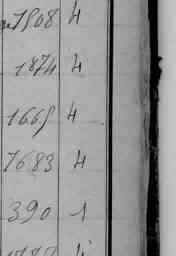 7808 4
1874 4
1669 4
7683 4
390 1